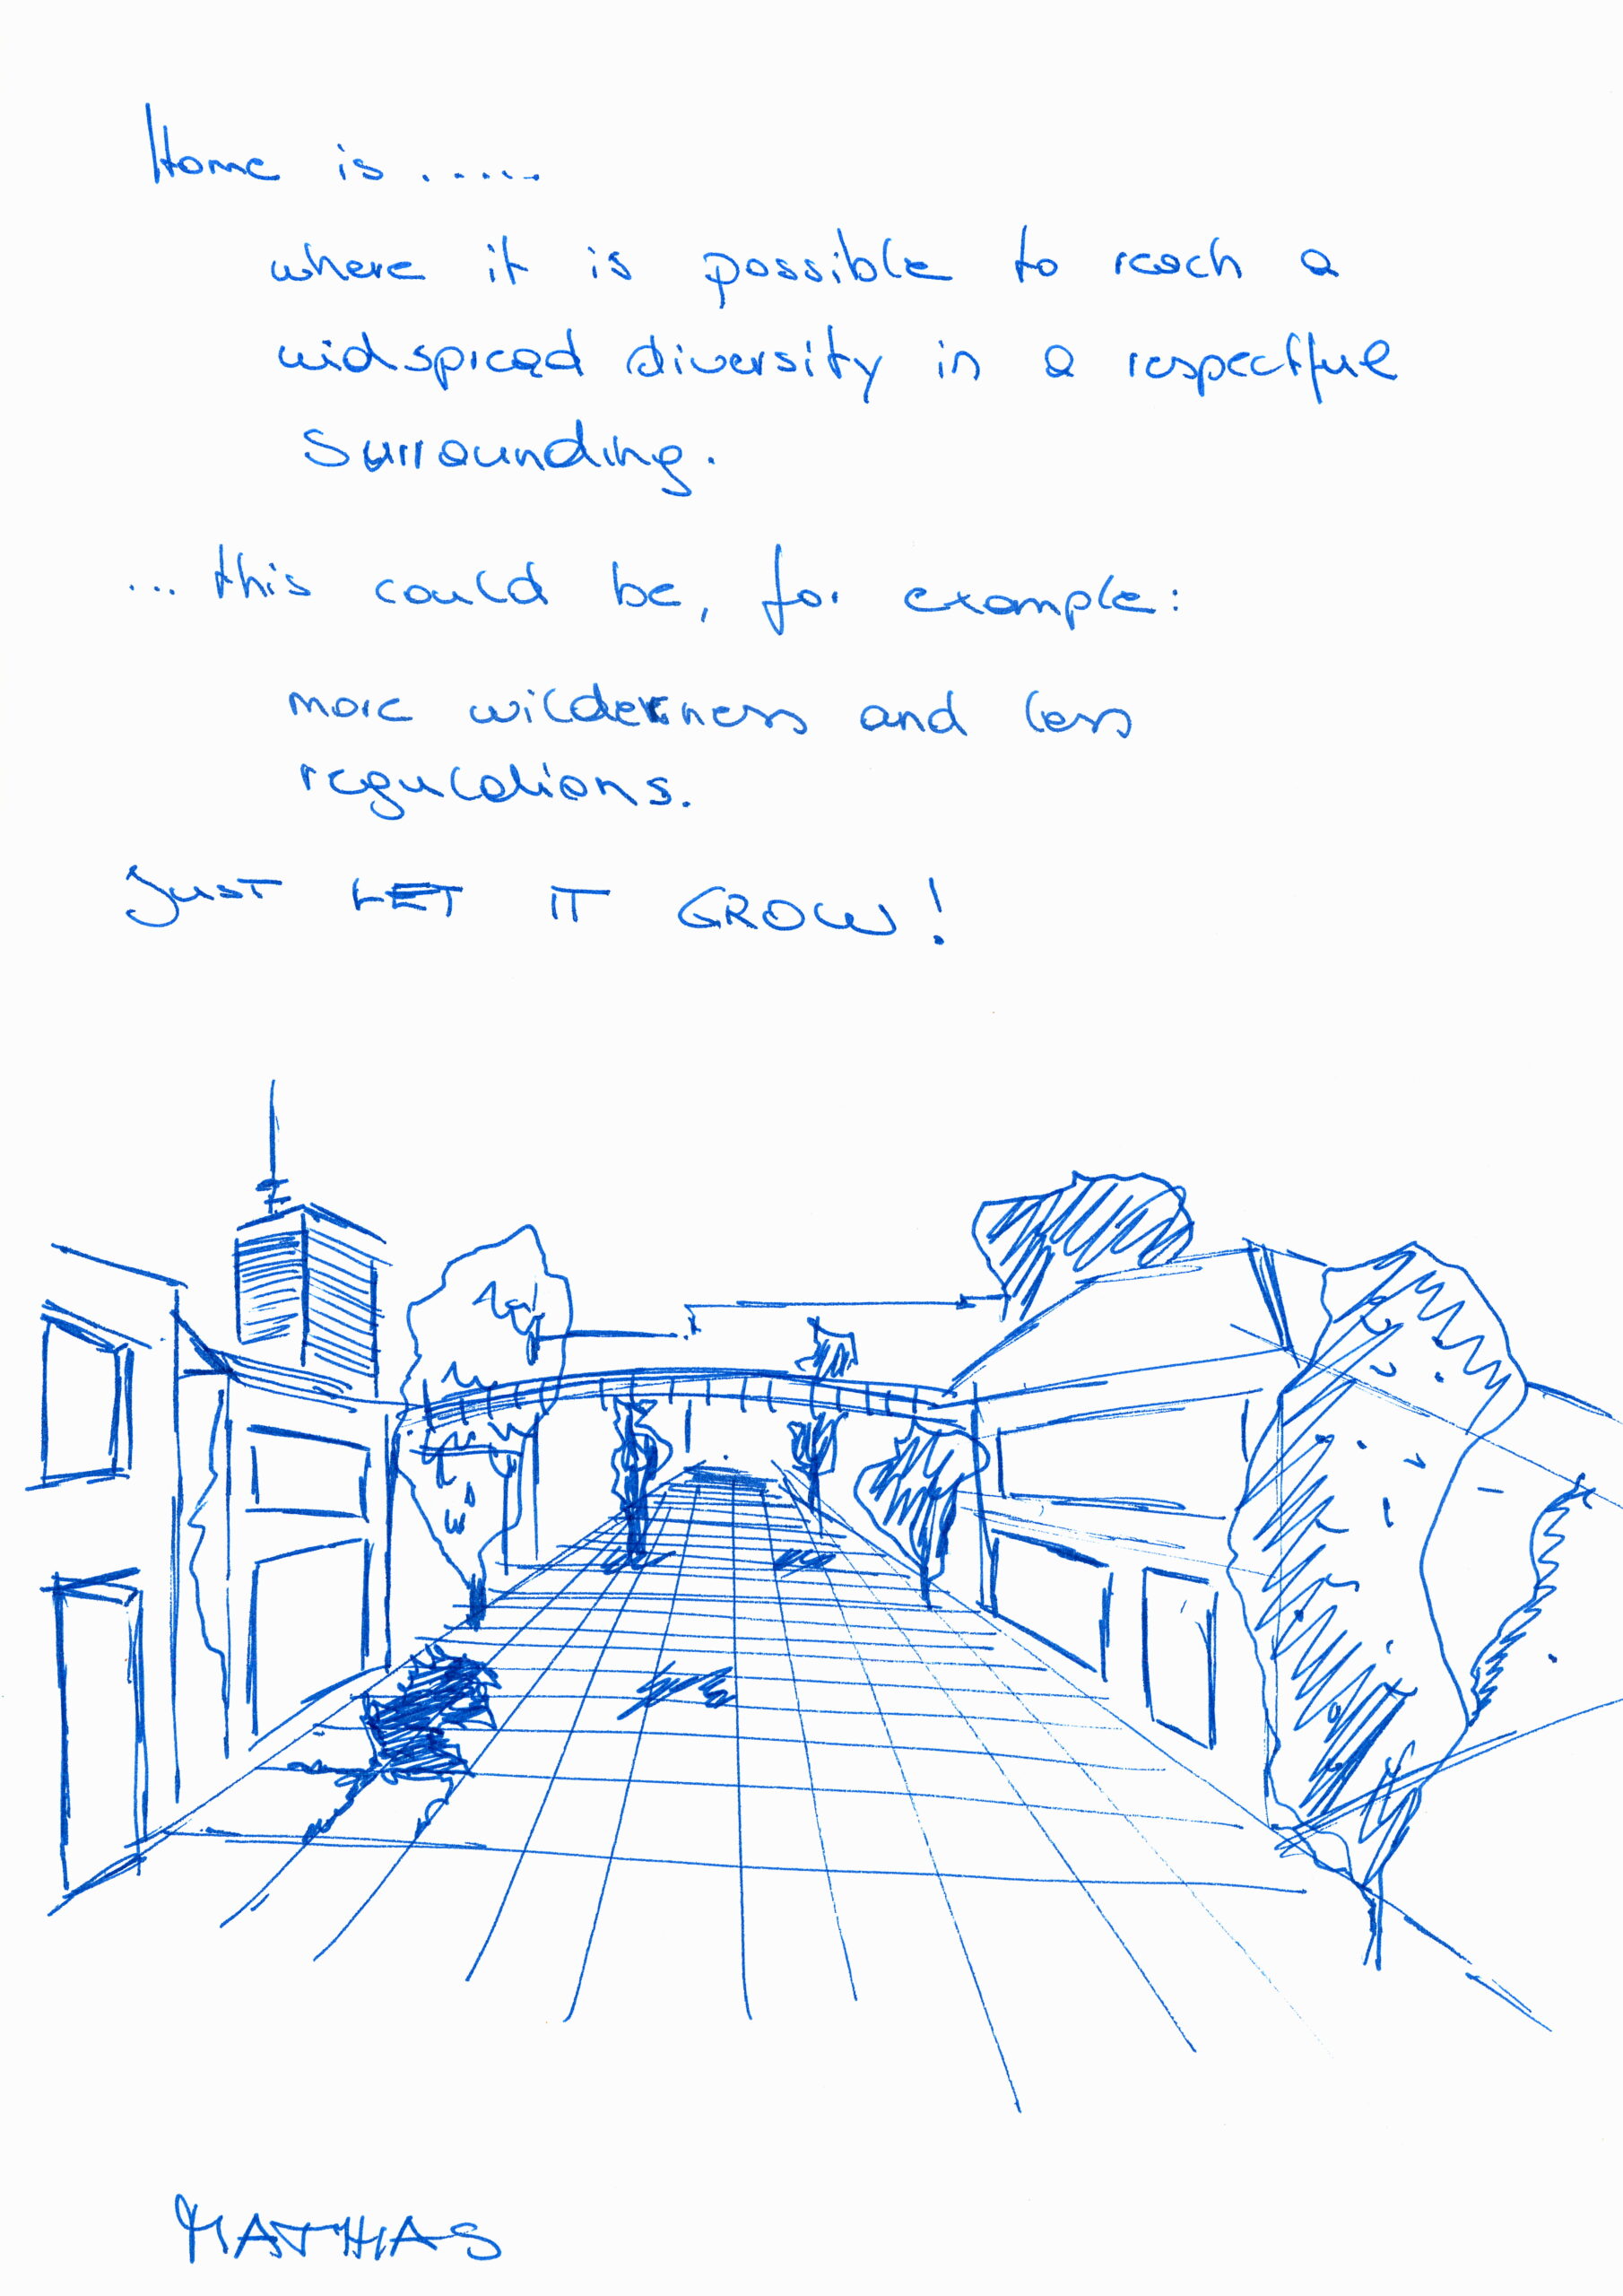 Home is .....
where it is possible to reach a
widspread diversity in a respectful
surrounding.
... this could be, for example:
more wilderness and less
regulations.
JUST LET IT GROW!
MATTHIAS